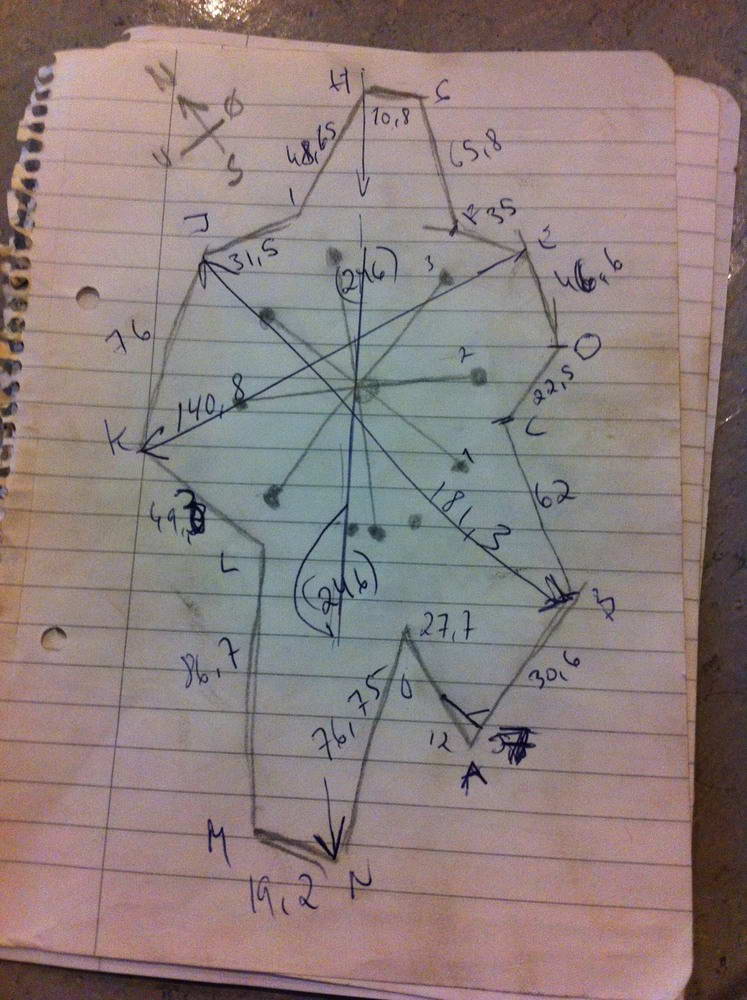 N
Ø
V
S
H
G
10,8
48,65
65,8
I
F
35
J
E
31,5
(246)
3
46,6
76
2
D
22,5
140,8
C
K
1
62
181,3
L
(246)
B
27,7
86,7
O
30,6
76,75
12
A
M
N
19,2